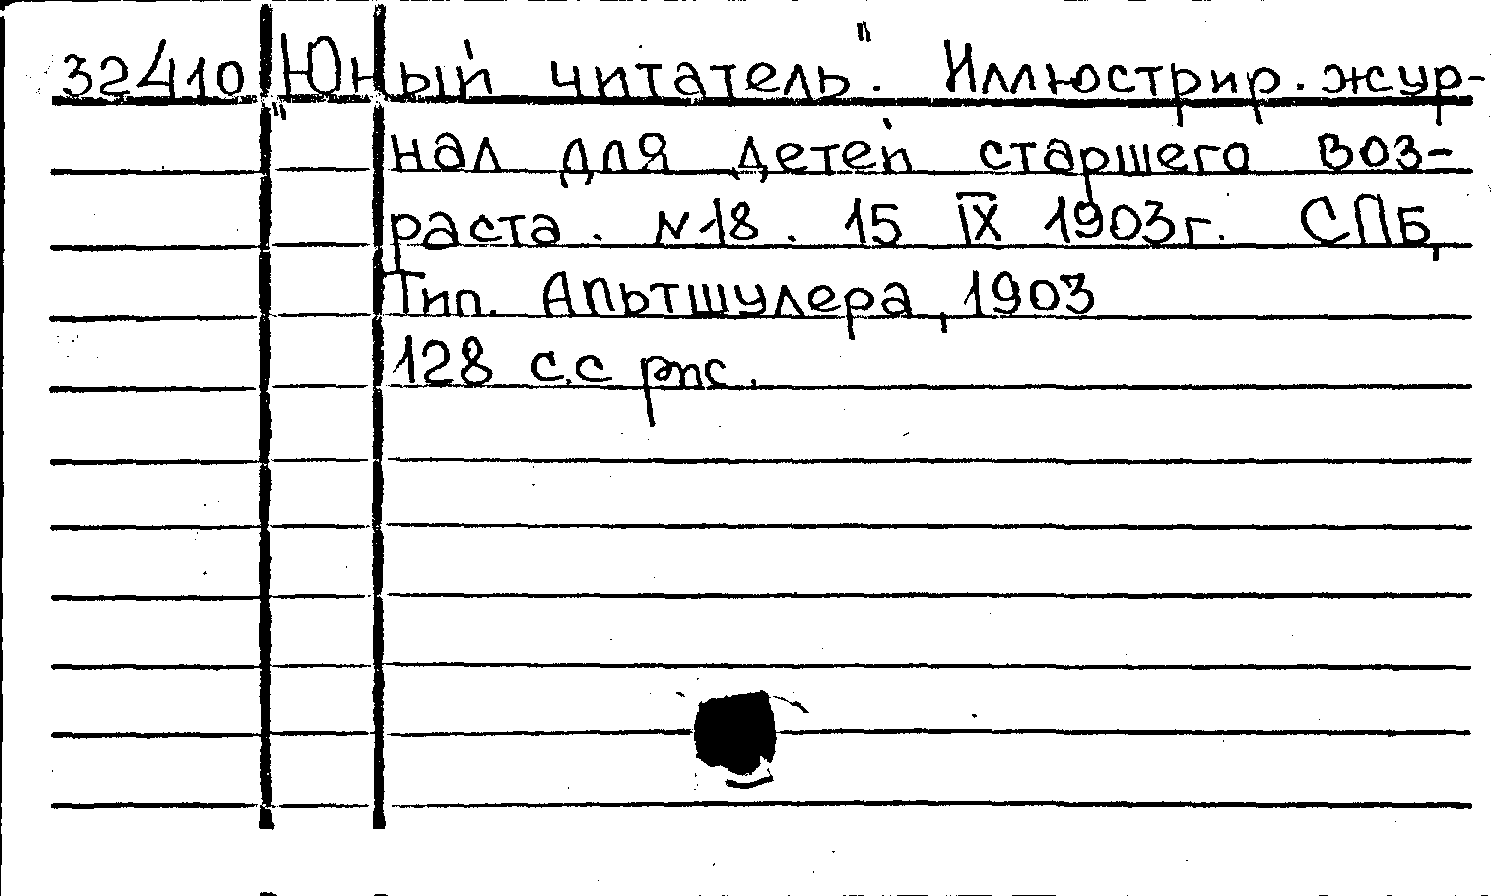 32410 „Юный читатель". Иллюстрир. жур-
нал для детей старшего воз-
раста. N 18. 15 IX 1903г. СПБ,
Тип. Альтшулера, 1903
128 с.с рис.